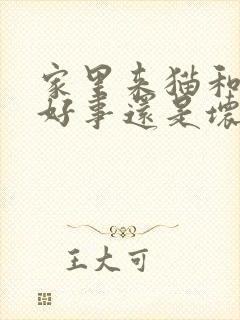 家里来猫和
好事还是坏
王大可